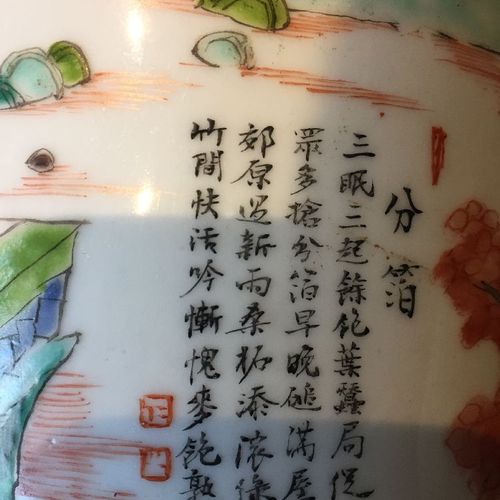 分箔
三眠三起餘飽葉蠶局促
眾多搶分箔早晚磓滿屋
郊原過新雨桑柘添濃綠
竹間快活吟慚愧麥飽熟
正